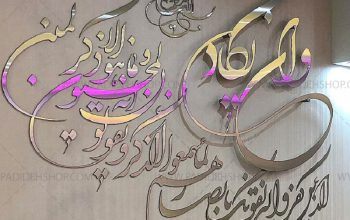 وان یکاد
الذین کفروا لیزلقونک بابصارهم
لما سمعوا الذکر و یقولون
انه لمجنون
و ما هو الا ذکر للعالمین
PADIDEHSHOP.COM